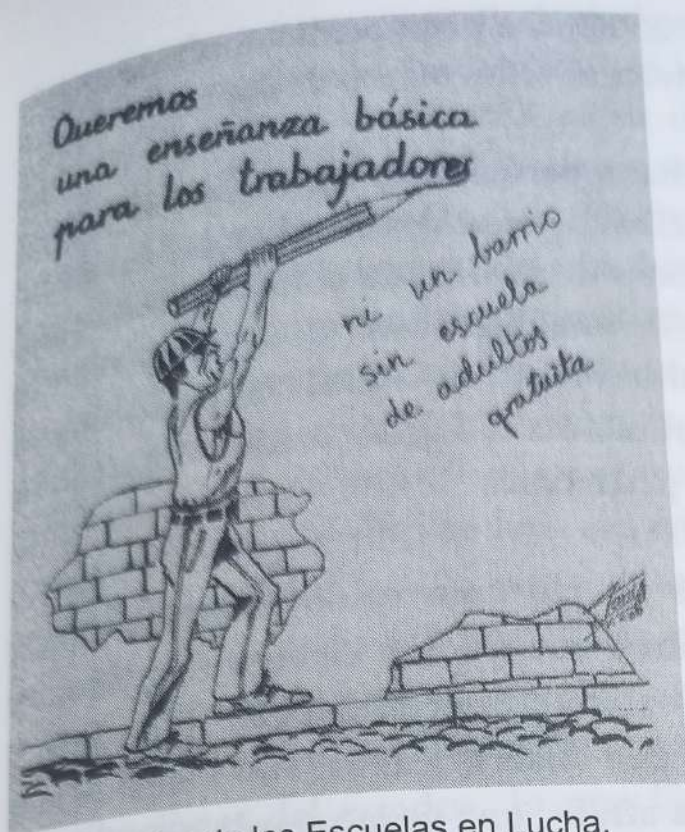 Queremos
una enseñanza básica
para los trabajadores
ni un barrio
sin escuela
de adultos
gratuita
Escuelas en Lucha.